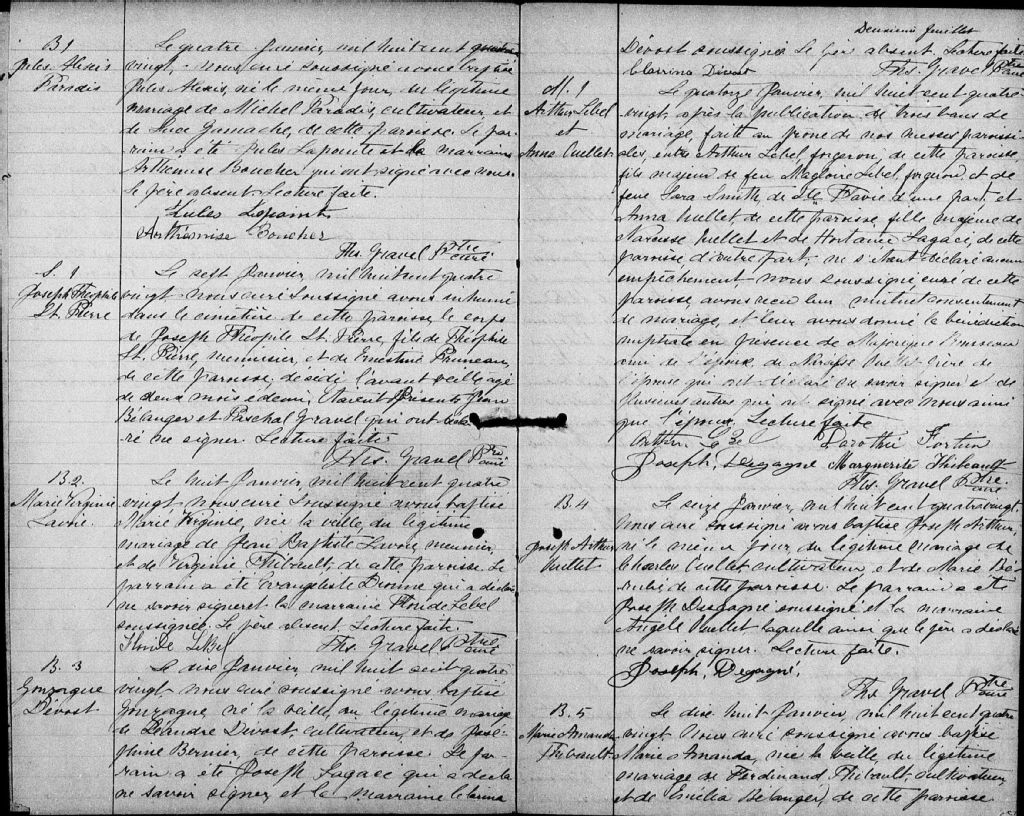 B 1
Jules Alexis
Paradis
Le quatre Janvier, mil huit cent quatre
vingt, nous curé soussigné avons baptisé
Jules Alexis, né le même jour, du légitime
mariage de Michel Paradis, cultivateur, et
de Luce Gamache, de cette paroisse. Le par-
rain a été Jules Lapointe et la marraine
Arthémise Boucher qui ont signé avec nous.
Le père absent. Lecture faite.
Jules Lapointe
Arthémise Boucher
Ths. Gravel Ptre curé
S. 1
Joseph Théophile
St. Pierre
Le sept Janvier, mil huit cent quatre
vingt nous curé soussigné avons inhumé
dans le cimetière de cette paroisse le corps
de Joseph Théophile St. Pierre, fils de Théophile
St. Pierre, menuisier, et de Ernestine Pruneau,
de cette paroisse, décédé l'avant veille agé
de deux mois et demi. Etaient présents Jean
Bélanger et Paschal Gravel qui ont décla-
ré ne signer. Lecture faite.
Ths. Gravel Ptre curé
B 2.
Marie Virginie
Lavoie
Le huit Janvier, mil huit cent quatre
vingt nous curé soussigné avons baptisé
Marie Virginie, née la veille, du légitime
mariage de Jean Baptiste Lavoie, meunier,
et de Virginie Thibault, de cette paroisse. Le
parrain a été Evangeliste Dionne qui a déclaré
ne savoir signer et la marraine Floride Lebel
soussignée. Le père absent. Lecture faite.
Floride Lebel Ths. Gravel Ptre curé
B. 3
Gonzague
Dévost
Le dix Janvier, mil huit cent quatre
vingt nous curé soussigné avons baptisé
Gonzague, né la veille, du légitime mariage
de Léandre Dévost, cultivateur, et de José-
phine Bernier, de cette paroisse. Le par-
rain a été Joseph Lagacé qui a déclaré
ne savoir signer et la marraine
Deuxième feuillet
Dévost soussignée. Le père absent. Lecture faite.
Dévost Ths. Gravel Ptre curé
M. 1
Arthur Lebel
et
Anna Ouellet
Le quatorze Janvier, mil huit cent quatre-
vingt, après la publication de trois bans de
mariage, faite au prône de nos messes paroissi-
ales, entre Arthur Lebel forgeron, de cette paroisse,
fils majeur de feu Magloire Lebel, forgeron, et de
feue Sara Smith, de Ste Flavie d'une part, et
Anna Ouellet de cette paroisse fille majeure de
Narcisse Ouellet et de Hortense Lagacé, de cette
paroisse d'autre part, ne s'étant déclaré aucun
empêchement nous soussigné, curé de cette
paroisse avons reçu leur mutuel consentement
de mariage, et leur avons donné la bénédiction
nuptiale en présence de Majorique
ami de l'époux, de Narcisse Ouellet père de
l'épouse qui ont déclaré ne savoir signer et de
plusieurs autres qui ont signé avec nous ainsi
que l'époux. Lecture faite
Arthur Lebel Dorothée Fortin
Joseph, Degagné Marguerite Thibault
Ths. Gravel Ptre curé
B. 4
Joseph Arthur
Ouellet
Le seize Janvier, mil huit cent quatre vingt,
nous curé soussigné avons baptisé Joseph Arthur,
né le même jour, du légitime mariage de
Charles Ouellet cultivateur, et de Marie
de cette paroisse. Le parrain a été
Joseph Desgagné soussigné et la marraine
Angèle Ouellet laquelle ainsi que le père a déclaré
ne savoir signer. Lecture faite.
Joseph, Degagné,
Ths Gravel Ptre curé
B. 5
Marie Amanda
Thibault
Le dix huit Janvier, mil huit cent quatre
vingt nous curé soussigné avons baptisé
Marie Amanda, née la veille, du légitime
mariage de Ferdinand Thibault, cultivateur,
et de Emélia Bélanger, de cette paroisse.